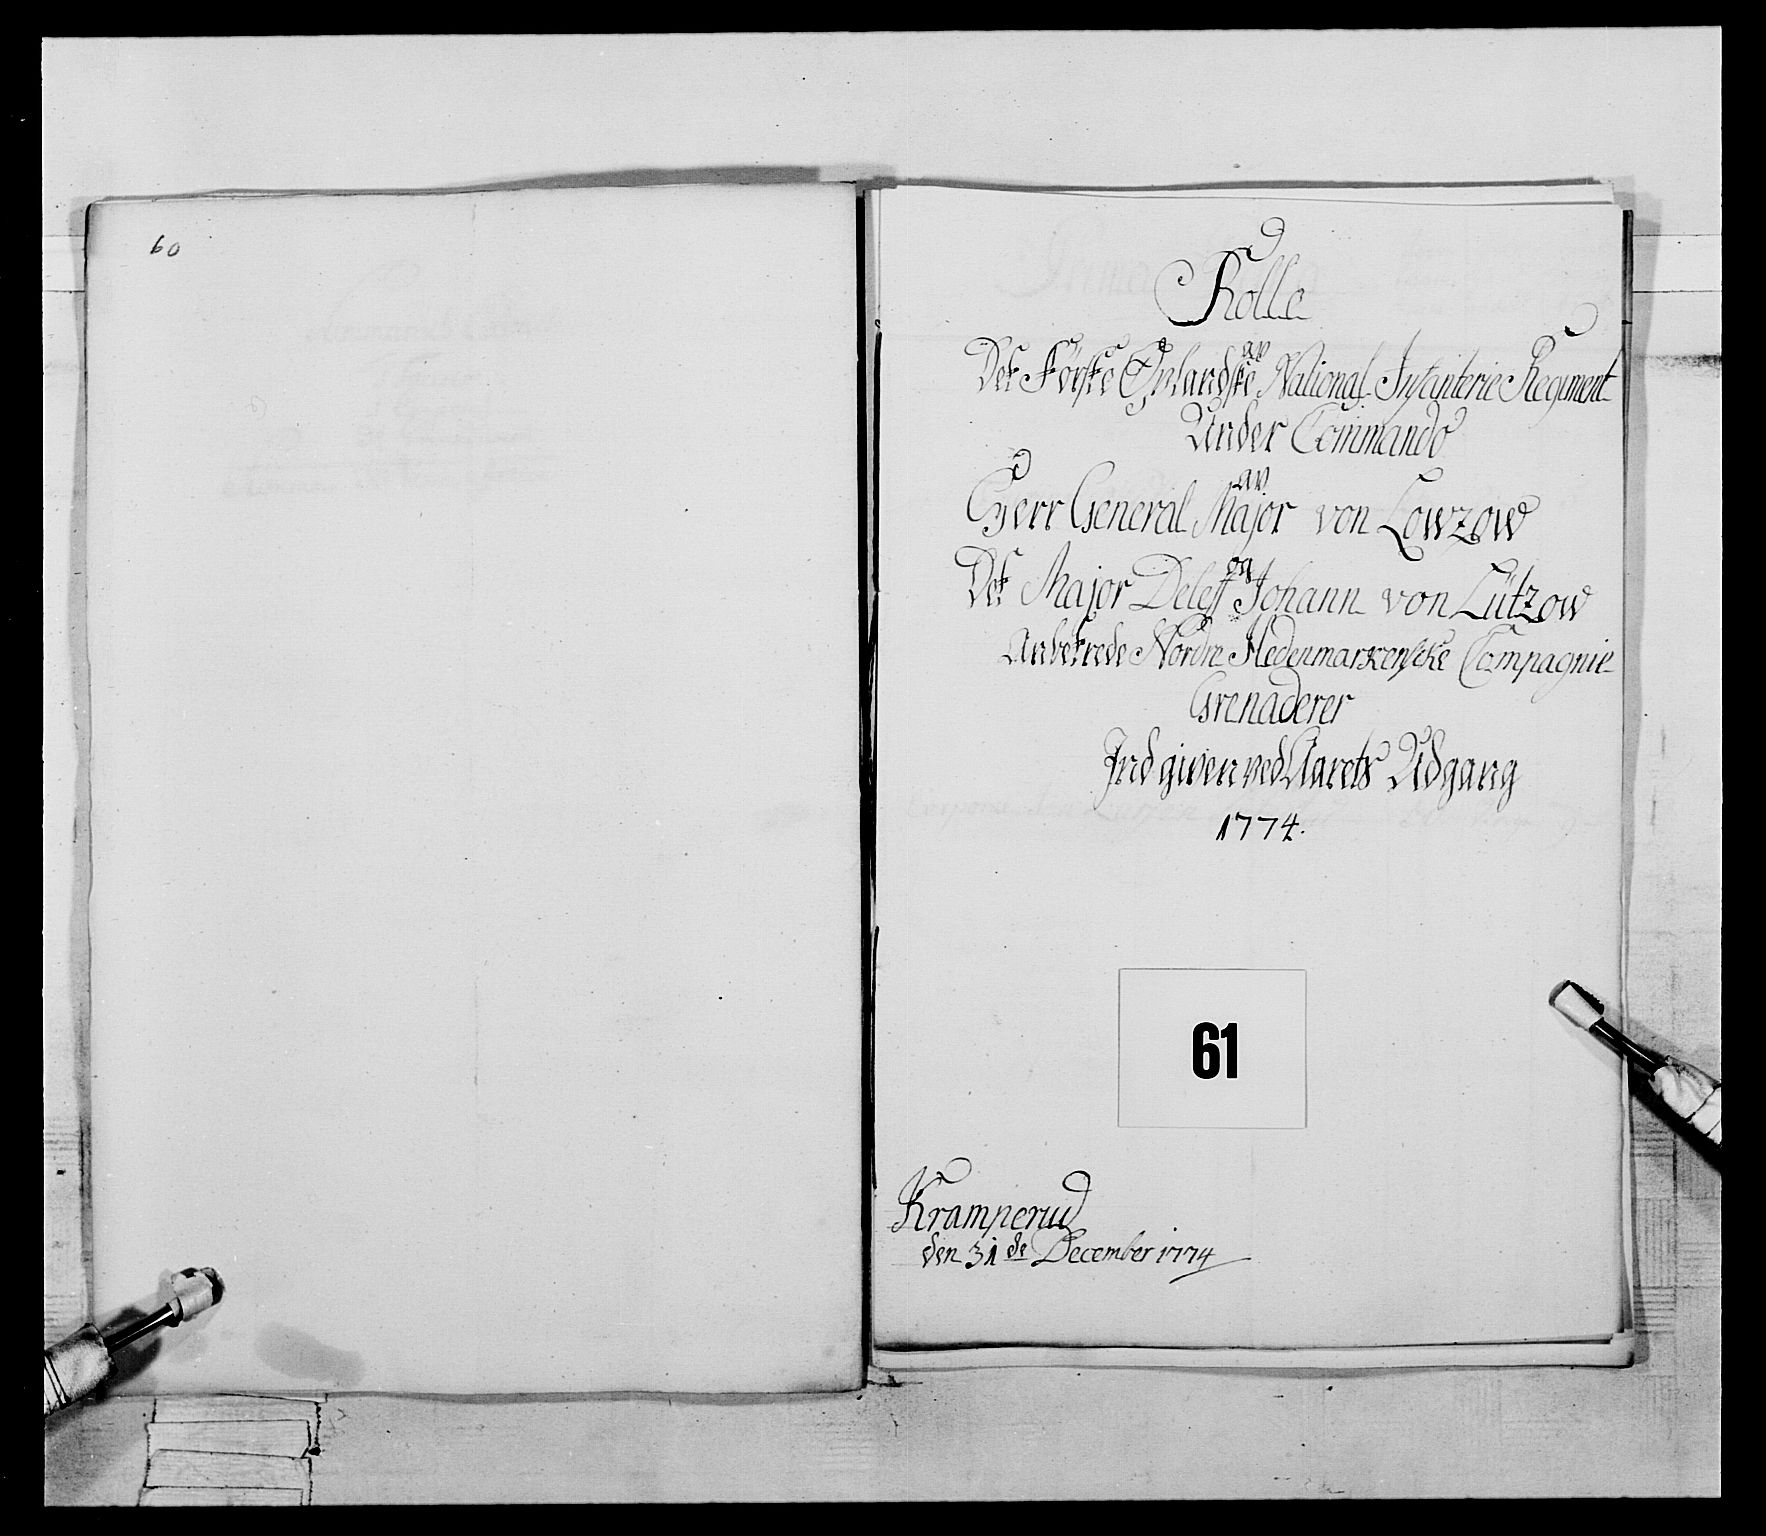 60
Rolle
av
Det Førske Oplandske National Infanterie Regiment
Under Commando
av
Herr General Major von Lowzow
og
Det Major Deleff Johann von Lützow
Anbetrede Nordre Hedenmarkenske Compagnie
Grenaderer
Indgiven ved Aarets Udgang
1774.
61
Kramperud
den 31de December 1774